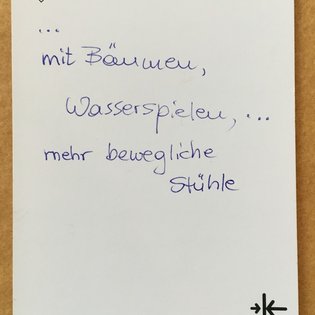 ...
mit Bäumen,
Wasserspielen, ...
mehr bewegliche
Stühle